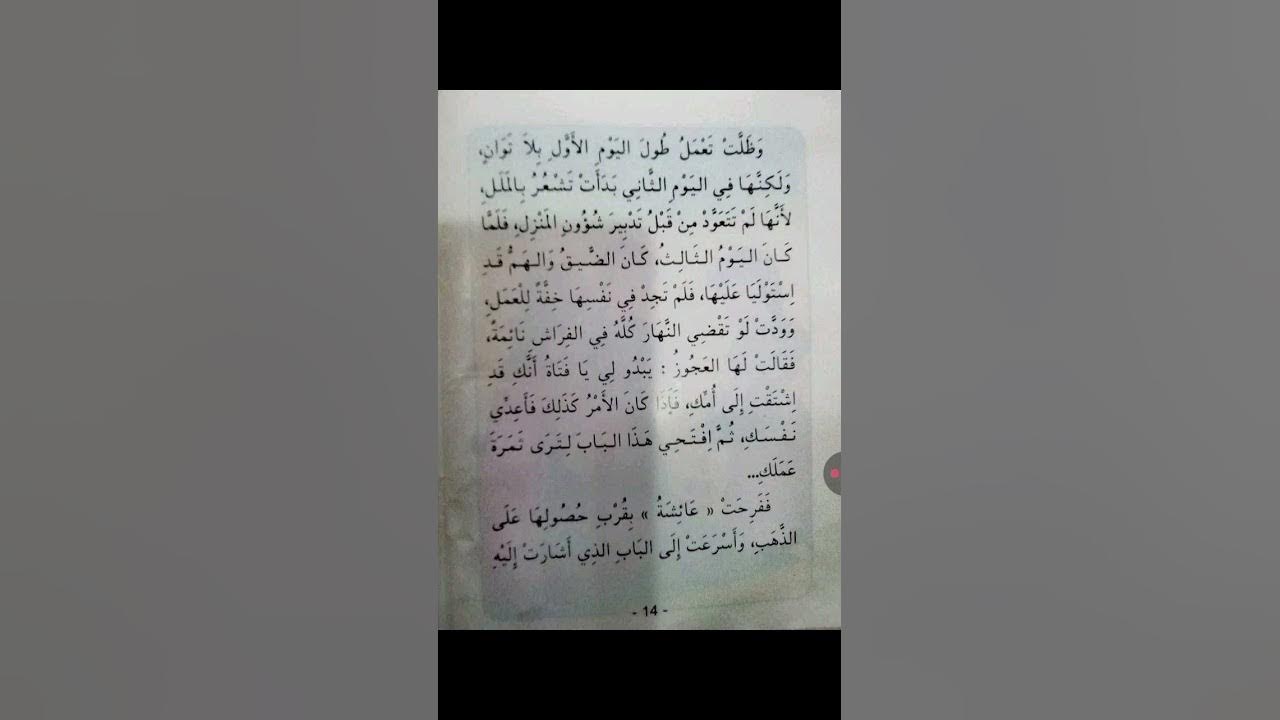 وَظَلَّتْ تَعْمَلُ طُولَ اليَوْمِ الأَوَّلِ بِلاَ تَوَانٍ،
وَلَكِنَّهَا فِي اليَوْمِ الثَّانِي بَدَأَتْ تَشْعُرُ بِالمَلَلِ،
لأَنَّهَا لَمْ تَتَعَوَّدْ مِنْ قَبْلُ تَدْبِيرَ شُؤُونِ المَنْزِلِ، فَلَمَّا
كَانَ اليَوْمُ الثَّالِثُ، كَانَ الضَّيقُ وَالهَمُّ قَدِ
اِسْتَوْلَيَا عَلَيْهَا، فَلَمْ تَجِدْ فِي نَفْسِهَا خِفَّةً لِلْعَمَلِ،
وَوَدَّتْ لَوْ تَقْضِي النَّهَارَ كُلَّهُ فِي الفِرَاشِ نَائِمَةً،
فَقَالَتْ لَهَا العَجُوزُ : يَبْدُو لِي يَا فَتَاةُ أَنَّكِ قَدِ
اِشْتَقْتِ إِلَى أُمِّكِ، فَإِذَا كَانَ الأَمْرُ كَذَلِكَ فَأَعِدِّي
نَفْسَكِ، ثُمَّ اِفْتَحِي هَذَا البَابَ لِتَرَى ثَمَرَةَ
عَمَلَكِ...
فَفَرِحَتْ « عَائِشَةُ » بِقُرْبِ حُصُولِهَا عَلَى
الذَّهَبِ، وَأَسْرَعَتْ إِلَى البَابِ الذِي أَشَارَتْ إِلَيْهِ
- 14 -